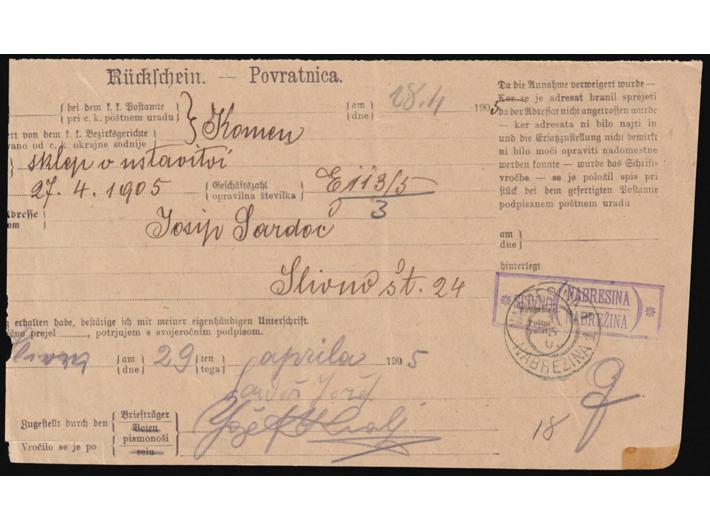 Rückschein. — Povratnica.
bei dem k. k. Postamte
pri c. k. poštnem uradu
Komen
am
dne
28.4
1905
ert von dem k. k. Bezirksgerichte
vano od c. k. okrajne sodnije
sklep o ustavitvi
27. 4. 1905
Geschäftszahl
opravilna številka
E 113/5
3
Adresse
om
Josip Sardoč
Slivno št. 24
g erhalten habe, bestätige ich mit meiner eigenhändigen Unterschrift.
prejel, potrjujem s svojeročnim podpisom.
am
dne
29
ten
tega
aprila
1905
Zugestellt durch den
Vročilo se je po
Briefträger
Boten
pismonoši
selu
18
Da die Annahme verweigert wurde —
Ker se je adresat branil sprejeti
da der Adressat nicht angetroffen wurde
— ker adresata ni bilo najti in
und die Ersatzzustellung nicht bewirkt
ni bilo moči opraviti nadomestne
werden konnte — wurde das Schrift-
vročbe — se je položil spis pri
stück bei dem gefertigten Postamte
podpisanem poštnem uradu
am
dne
hinterlegt
NABRESINA
NABREŽINA
NABREŽINA